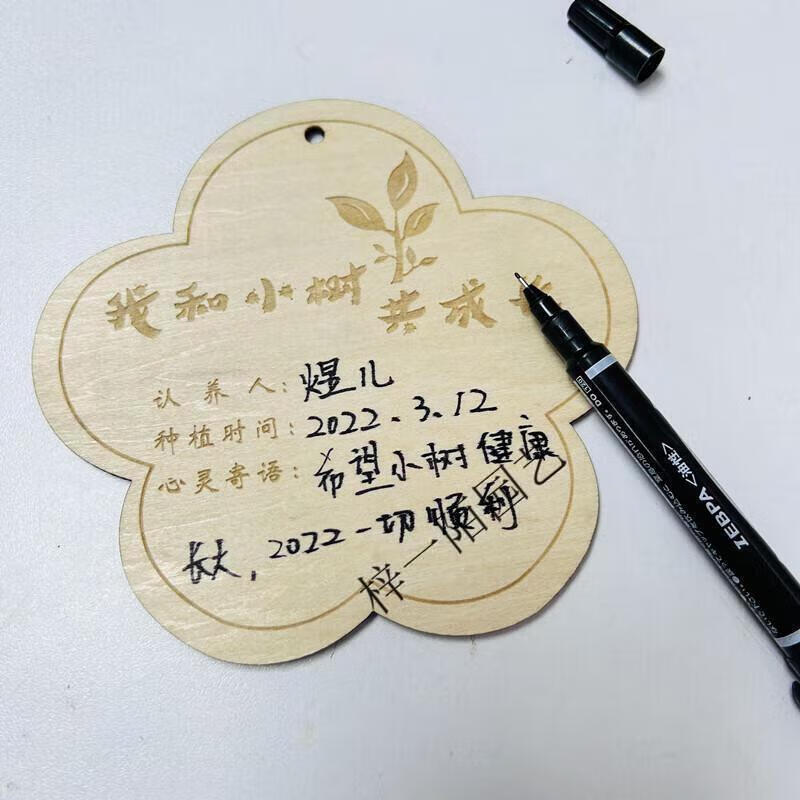 我和小树共成长
认养人:煜儿
种植时间:2022.3.12
心灵寄语:希望小树健康
长大,2022一切顺利
梓一陌园艺
ZEBPA <油性>